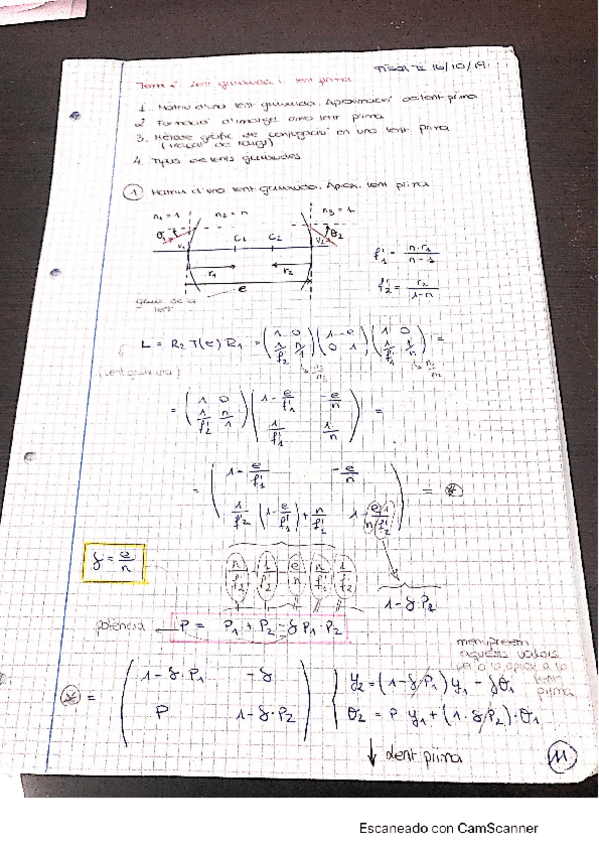 Física II 16/10/19
Tema 2. Lent gruixuda i lent prima
1. Matriu d'una lent gruixuda. Aproximació de lent prima
2 Formació d'imatges amb lent prima
3. Mètode gràfic de conjugació en una lent prima
(traçat de raigs)
4. Tipus de lents gruixudes
① Matriu d'una lent gruixuda. Aprox. lent prima
n₁ = 1 n₂ = n n₃ = 1
θ₁ V₁ C₁ C₂ V₂ θ₂
r₁ r₂
e
f'₁ = n·r₁ / n-1
f'₂ = r₂ / 1-n
gruix de la
lent
L = R₂ T(e) R₁ = (1 0; 1/f'₂ n/1) (1 -e; 0 1) (1 0; 1/f'₁ 1/n) =
(lent gruixuda)
= (1 0; 1/f'₂ n/1) (1 - e/f'₁ -e/n; 1/f'₁ 1/n) =
= (1 - e/f'₁ -e/n; 1/f'₂ (1 - e/f'₁) + n/f'₁ 1 - e/n 1/f'₂) = ⊛
δ = e/n
n/f'₁ 1/f'₂ e/n n/f'₁ 1/f'₂
1 - δ·P₂
potència ← P = P₁ + P₂ - δ P₁·P₂
menyspreem
aquests valors
per a la aprox a la
lent
prima
⊛ = (1 - δ·P₁ -δ; P 1 - δ·P₂) { y₂ = (1 - δP₁) y₁ - δθ₁
θ₂ = P y₁ + (1 - δP₂)·θ₁
↓ lent prima
11
Escaneado con CamScanner